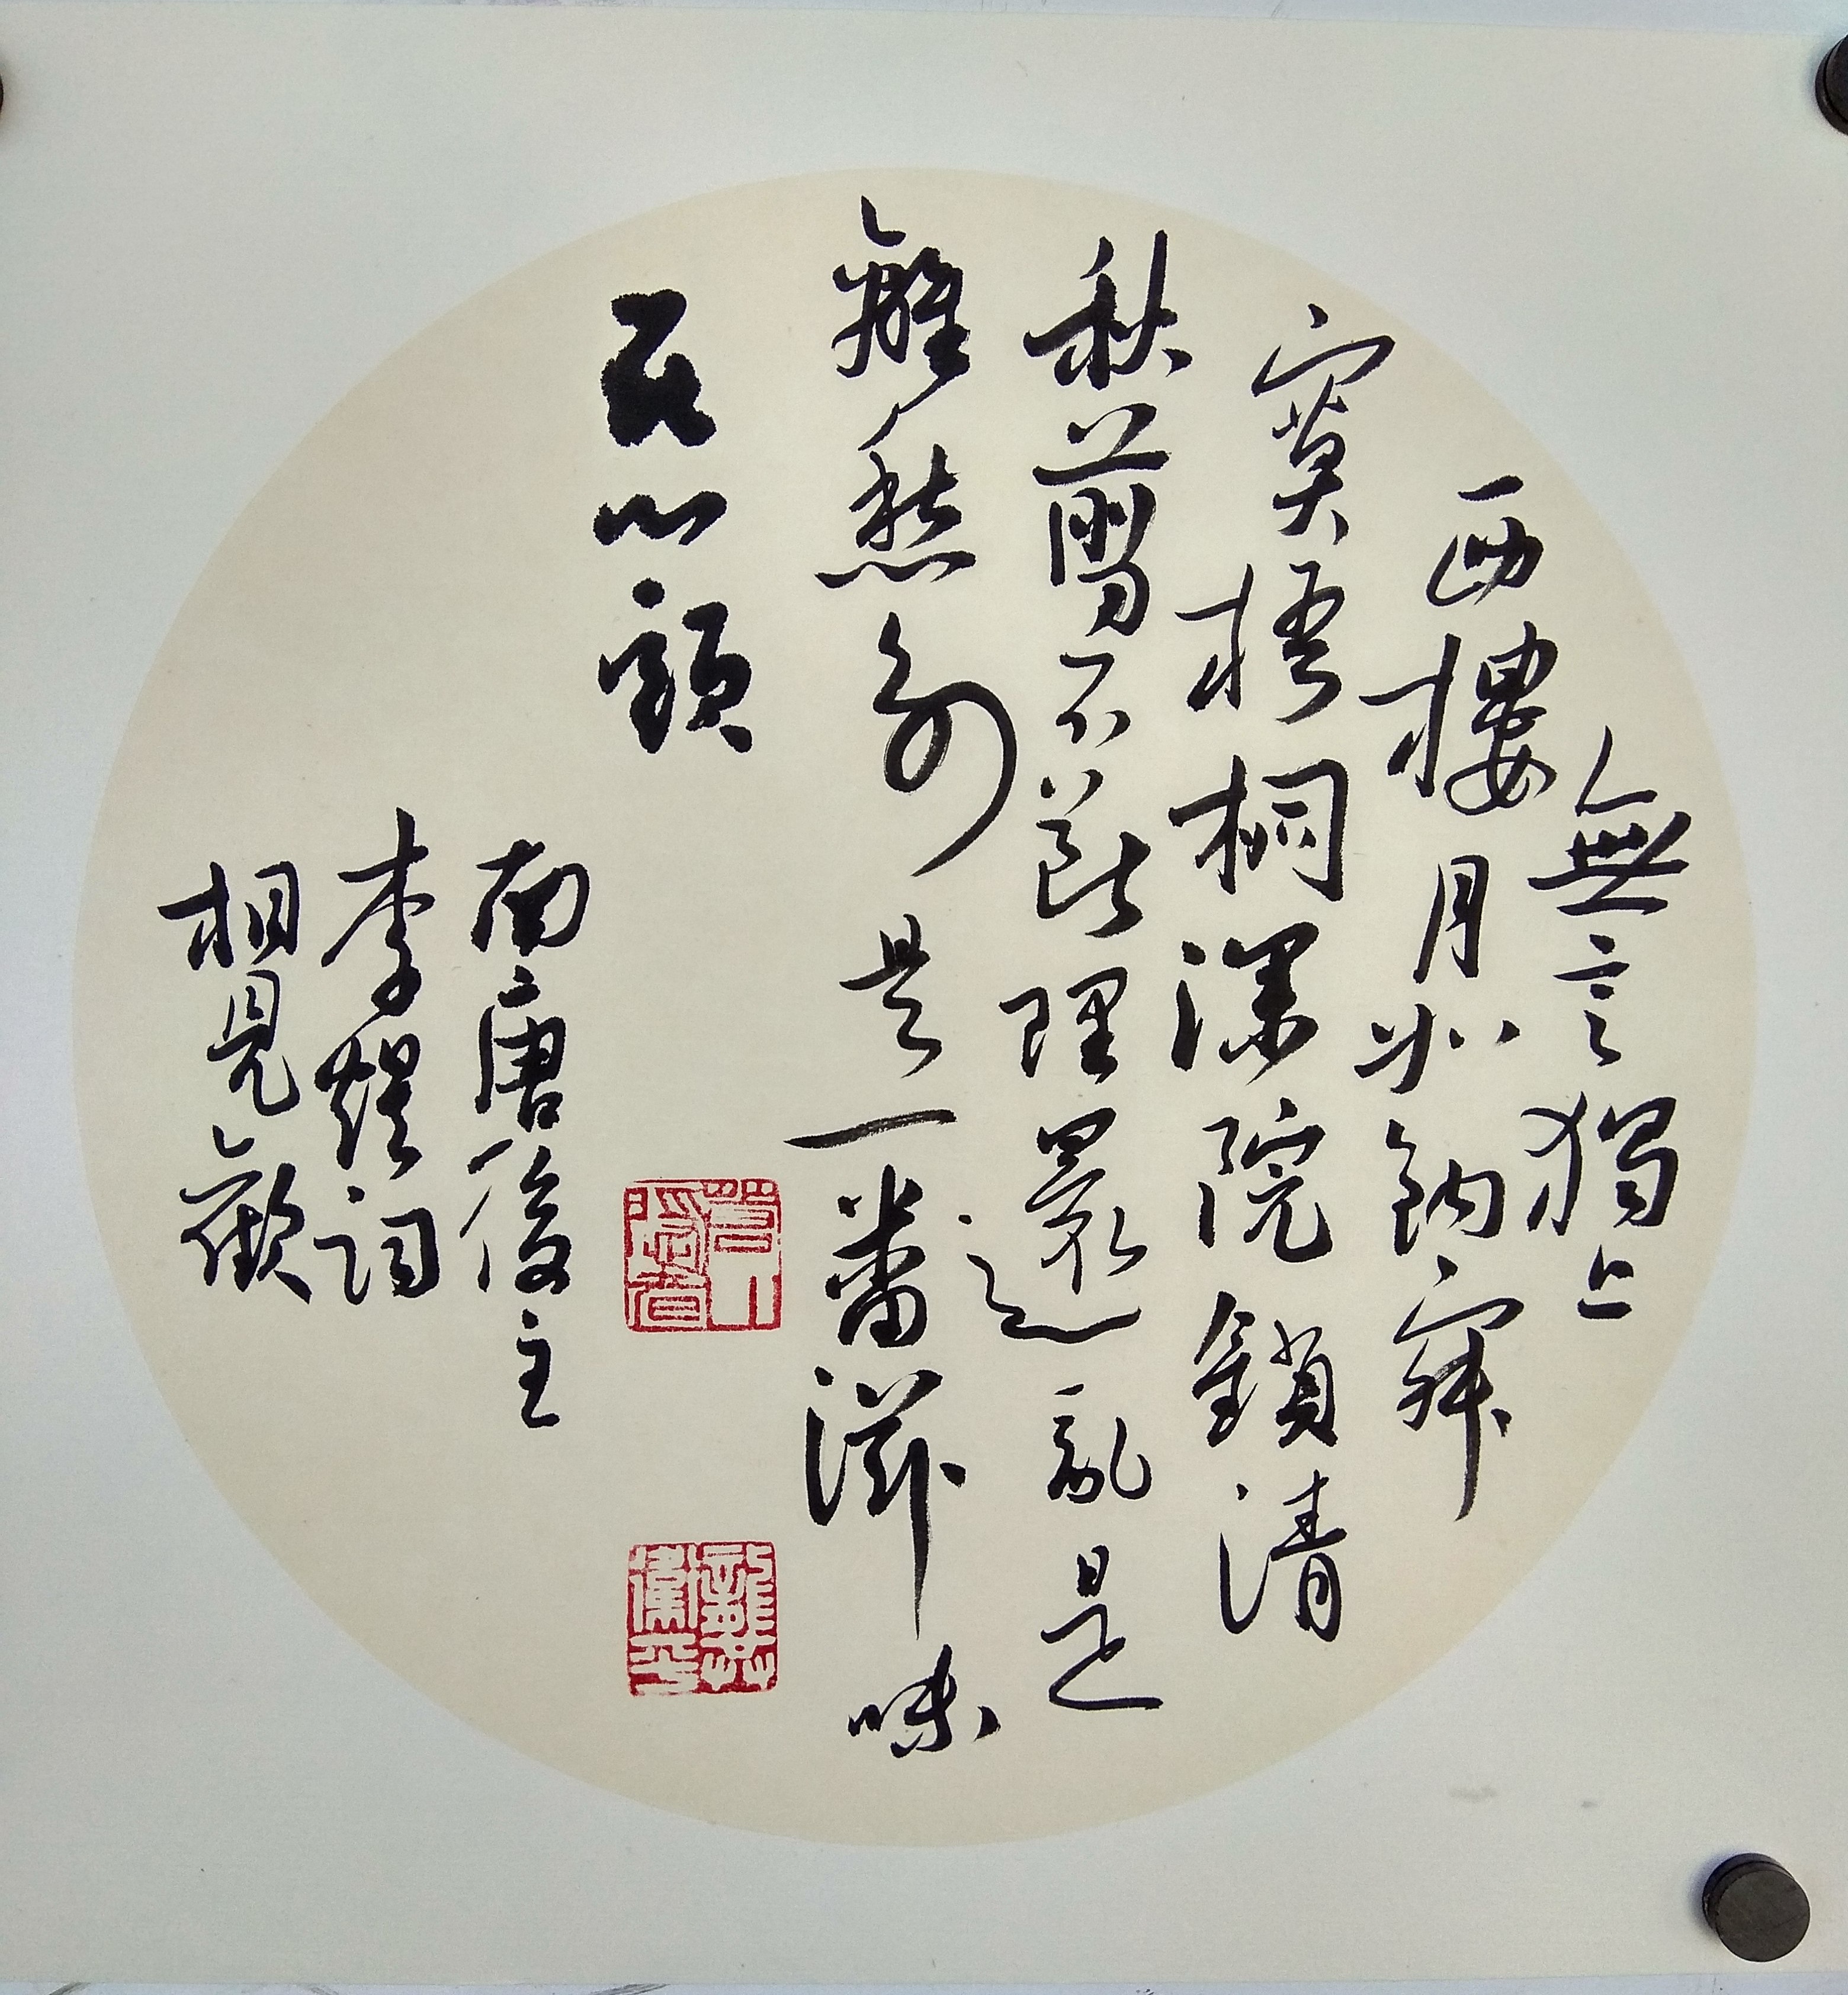 無言獨上
西樓月如鈎寂
寞梧桐深院鎖清
秋剪不斷理還亂是
離愁别是一番滋味
在心頭
南唐後主
李煜詞
相見歡